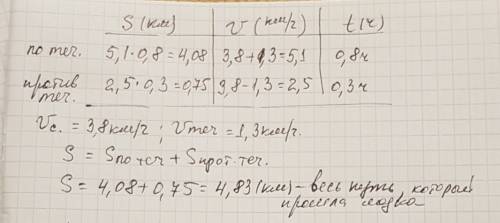 S (км) V (км/г) t(ч)
по теч. 5,1·0,8=4,08 3,8+1,3=5,1 0,8ч
против теч. 2,5·0,3=0,75 3,8-1,3=2,5 0,3ч
Vс. = 3,8км/г ; Vтеч = 1,3км/г.
S = Sпо теч + Sпрот. теч.
S = 4,08+0,75 = 4,83 (км) – весь путь, который
прошла лодка